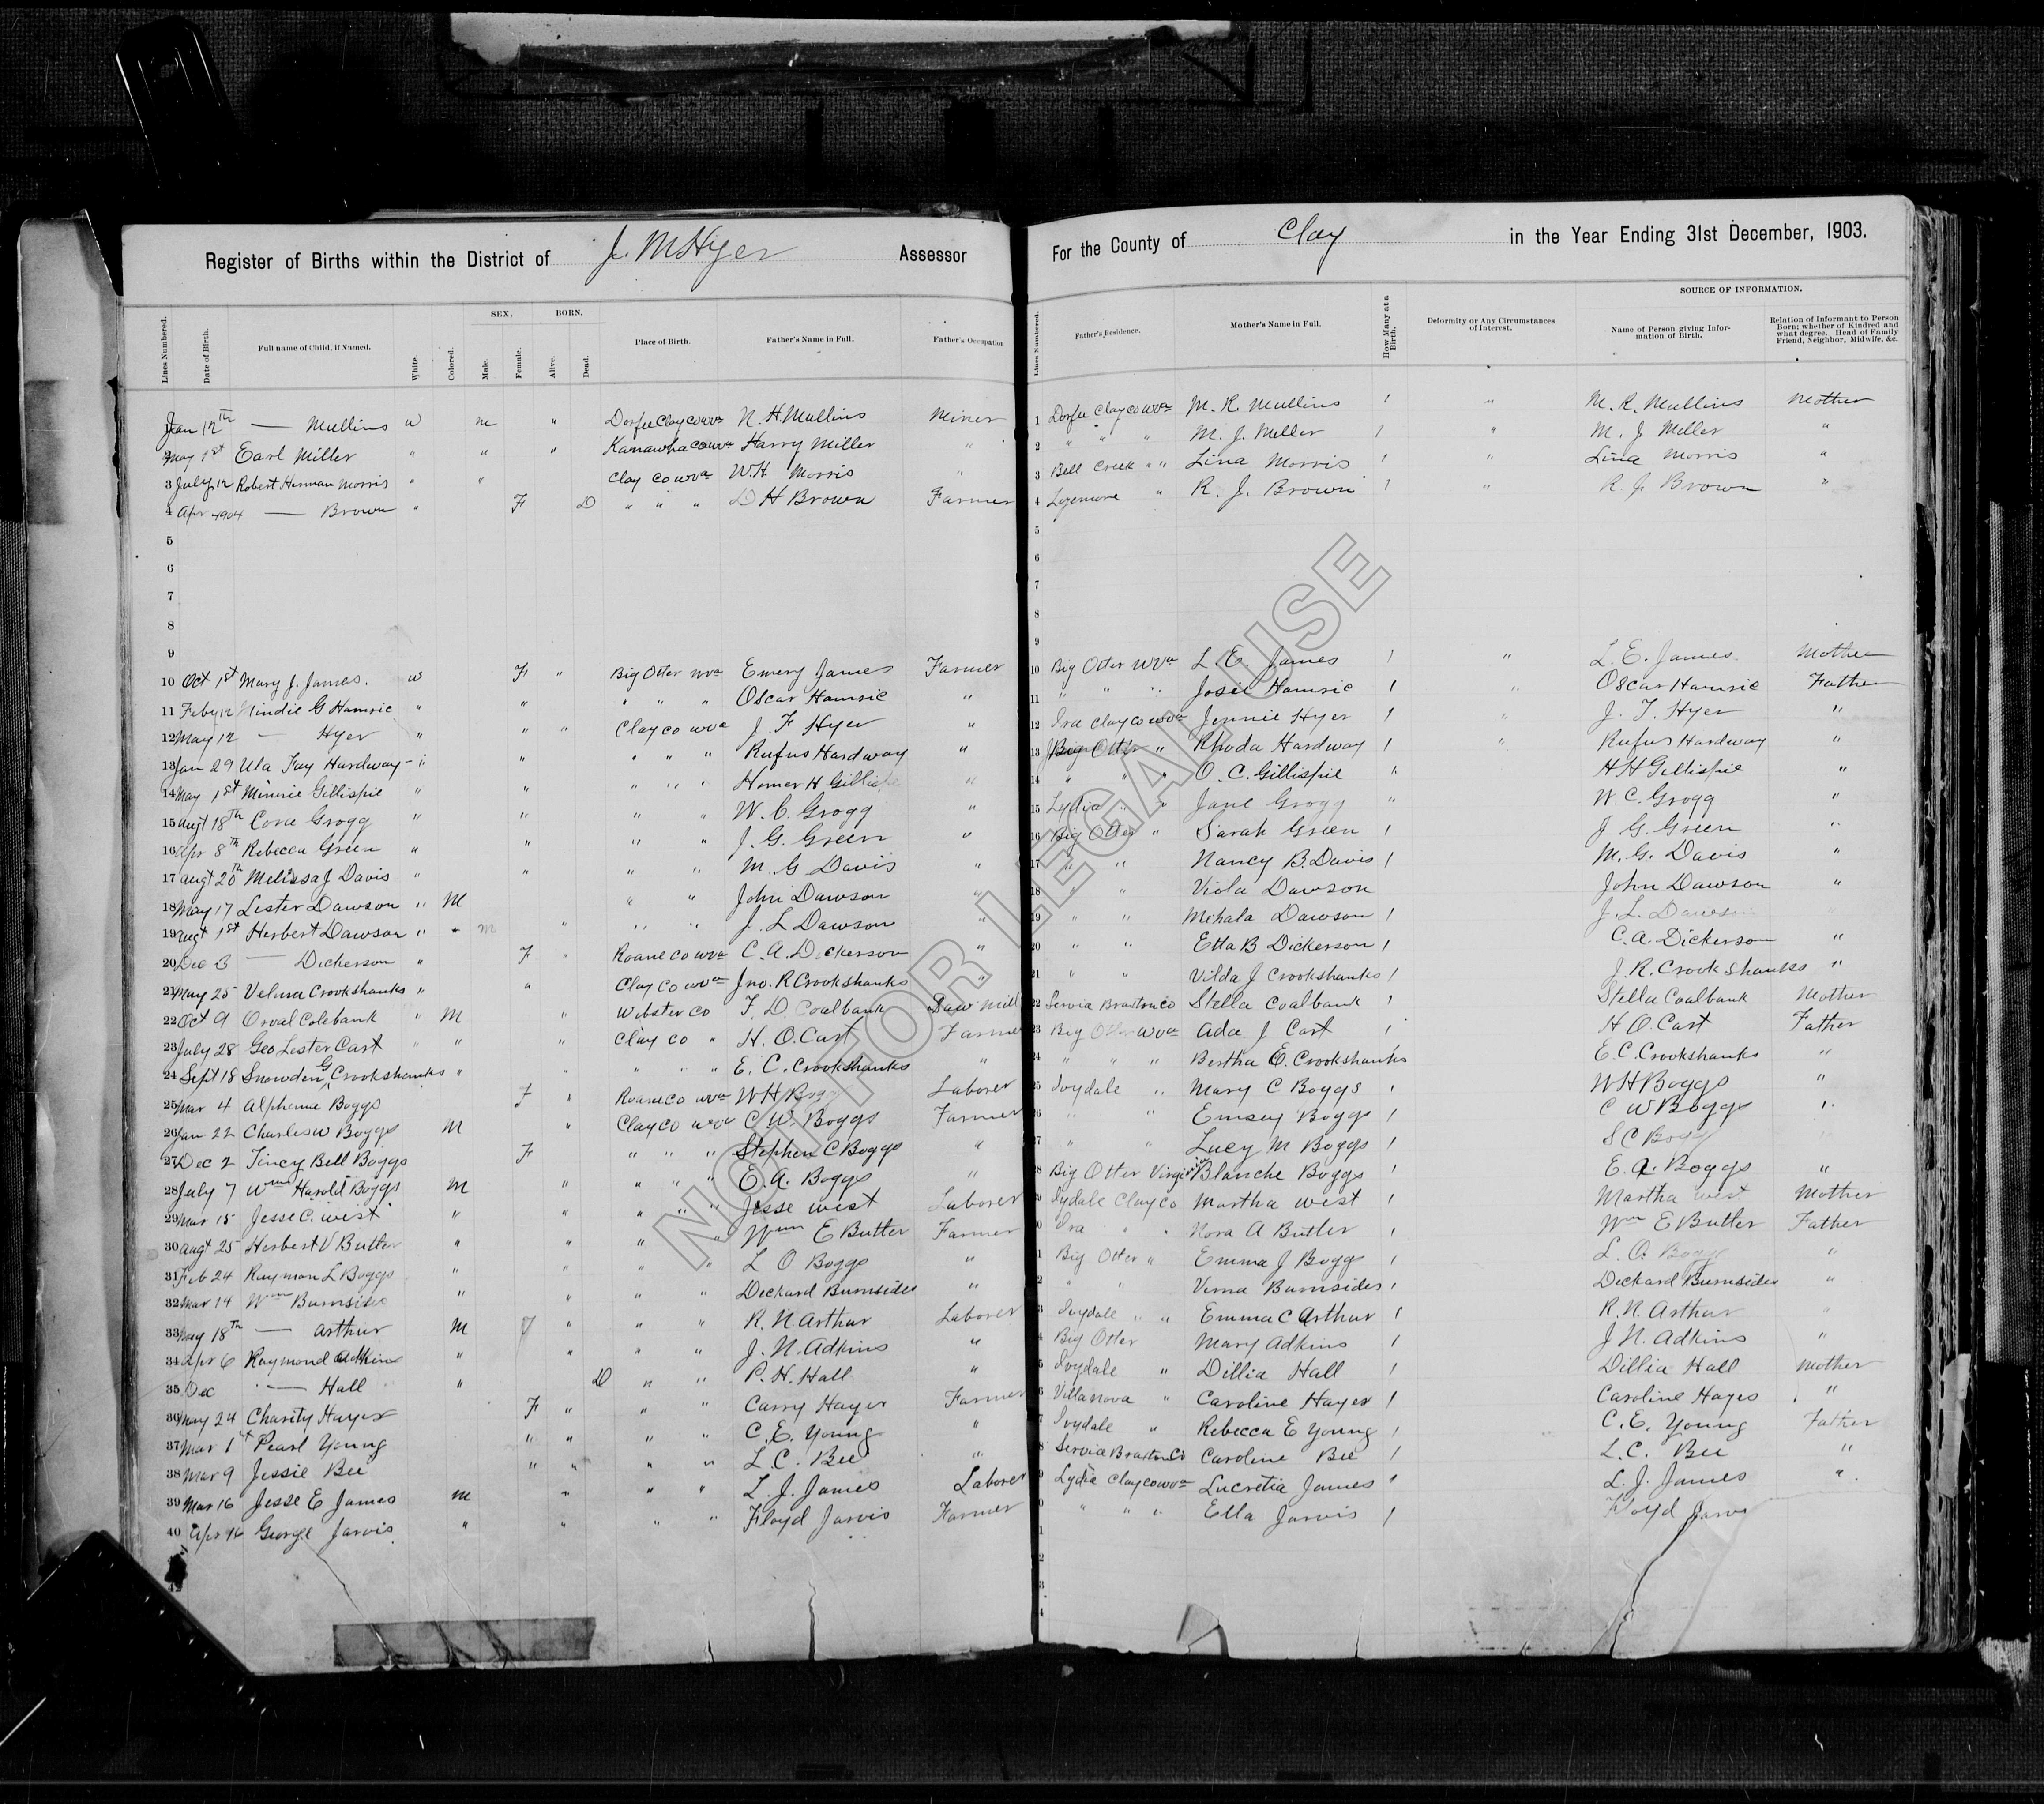 Register of Births within the District of J. M Hyer Assessor For the County of Clay in the Year Ending 31st December, 1903.
SEX. BORN. SOURCE OF INFORMATION.
Lines Numbered. Date of Birth. Full name of Child, if Named. White. Colored. Male. Female. Alive. Dead. Place of Birth. Father's Name in Full. Father's Occupation Lines Numbered. Father's Residence. Mother's Name in Full. How Many at a Birth. Deformity or Any Circumstances of Interest. Name of Person giving Information of Birth. Relation of Informant to Person Born; whether of Kindred and what degree, Head of Family Friend, Neighbor, Midwife, &c.
Jan 12th — Mullins W m " Dorfee Clay co wva N. H. Mullins Miner 1 Dorfee Clay co wva M. R. Mullins 1 " M. R. Mullins Mother
May 1st Earl Miller " " " Kanawha co wva Harry Miller " 2 " " " M. J. Miller 1 " M. J. Miller "
3 July 12 Robert Herman Morris " " Clay co wva W H Morris " 3 Bell Creek " " Lina Morris 1 " Lina Morris "
4 Apr 1904 — Brown " F D " " " D H Brown Farmer 4 " R. J. Brown 1 " R. J. Brown "
5 5
6 6
7 7
8 8
9 9
10 Oct 1st Mary J. James. W F " Big Otter wva Emery James Farmer 10 Big Otter wva L. E. James 1 " L. E. James Mother
11 Feby 12 G Hamric " " " " " Oscar Hamric " 11 " " " Josie Hamric 1 " Oscar Hamric Father
12 May 12 — Hyer " " " Clay co wva J. F Hyer " 12 Ira Clay co wva Jennie Hyer 1 " J. F. Hyer "
13 Jan 29 Ula Fay Hardway " " " " " Rufus Hardway " 13 Big Otter " Rhoda Hardway 1 " Rufus Hardway "
14 May 1st Minnie Gillispie " " " " " Homer H Gillispie " 14 " " " O. C. Gillispie " H H Gillispie "
15 Augt 18th Cora Grogg " " " " W. C. Grogg " 15 Lydia " " Jane Grogg " W. C. Grogg "
16 Apr 8th Rebecca Green " " " " J. G. Green " 16 Big Otter " Sarah Green 1 J G. Green "
17 Augt 20th Melissa J Davis " " " " M. G Davis " 17 " " Nancy B. Davis 1 M. G. Davis "
18 May 17 Lester Dawson " M " " John Dawson " 18 " " Viola Dawson John Dawson "
19 Augt 1st Herbert Dawson " " m " " " J. L Dawson " 19 " " Mihala Dawson 1 J. L. Dawson "
20 Dec 3 — Dickerson " F " Roane co wva C. A. Dickerson " 20 " " Etta B Dickerson 1 C. A. Dickerson "
21 May 25 Velma Crookshanks " " Clay co wva Jno. R Crookshanks " 21 " " Vilda J Crookshanks 1 J. R. Crookshanks "
22 Oct 9 Orval Colebank " M " Webster co F. D. Coalbank Saw Mill 22 Servia Braxton co Stella Coalbank 1 Stella Coalbank Mother
23 July 28 Geo Lester Cart " " " Clay co " H. O. Cart Farmer 23 Big Otter wva Ada J Cart 1 H O. Cart Father
24 Sept 18 Snowden G Crookshanks " " " " " E. C. Crookshanks " 24 " " " Bertha E. Crookshanks E. C. Crookshanks "
25 Mar 4 Boggs F " Roane co wva W H Boggs Laborer 25 Ivydale " Mary C Boggs 1 W H Boggs "
26 Jan 22 Charles W Boggs M " Clay co wva C. W. Boggs Farmer 6 " " Boggs 1 C W Boggs "
27 Dec 2 Tincy Bell Boggs F " " " Stephen C Boggs " 7 " " Lucy M Boggs 1 S C Boggs
28 July 7 Wm Harold Boggs M " " " " E. A. Boggs " 8 Big Otter Virginia Blanche Boggs 1 E. A. Boggs "
29 Mar 15 Jesse C. West " " " " " Jesse West Laborer 9 Ivydale Clay co Martha West 1 Martha West Mother
30 Augt 25 Herbert V Butler " " " " Wm E Butler Farmer 0 Ira " " Nora A Butler 1 Wm E Butler Father
31 Feb 24 Raymon L Boggs " " " " L O Boggs " 1 Big Otter " Emma J Boggs 1 L. O. Boggs "
32 Mar 14 Wm Burnsides " " " " Deckard Burnsides " 2 " " Verna Burnsides 1 Deckard Burnsides "
33 May 18th — Arthur M F " " " R. N. Arthur Laborer 3 Ivydale " " Emma C Arthur 1 R. N. Arthur "
34 Apr 6 Raymond Adkins " " " " J. N. Adkins " 4 Big Otter Mary Adkins 1 J N. Adkins "
35 Dec — Hall " D " " P. H. Hall " 5 Ivydale " Dillia Hall 1 Dillia Hall Mother
36 May 24 Charity Hayes F " " " Carry Hayes Farmer 6 Villanova " Caroline Hayes 1 Caroline Hayes "
37 Mar 1st Pearl Young " " " " C. E. Young " 7 Ivydale " Rebecca E Young 1 C. E. Young Father
38 Mar 9 Jessie Bee " " " " L. C. Bee " 8 Servia Braxton Co Caroline Bee 1 L. C. Bee "
39 Mar 16 Jesse E James M " " " L. J. James Laborer 9 Lydia Clay co wva Lucretia James 1 L. J. James "
40 Apr 16 George Jarvis " " " " Floyd Jarvis Farmer 0 " " " Ella Jarvis 1 Floyd Jarvis
1
42 2
3
4
NOT FOR LEGAL USE